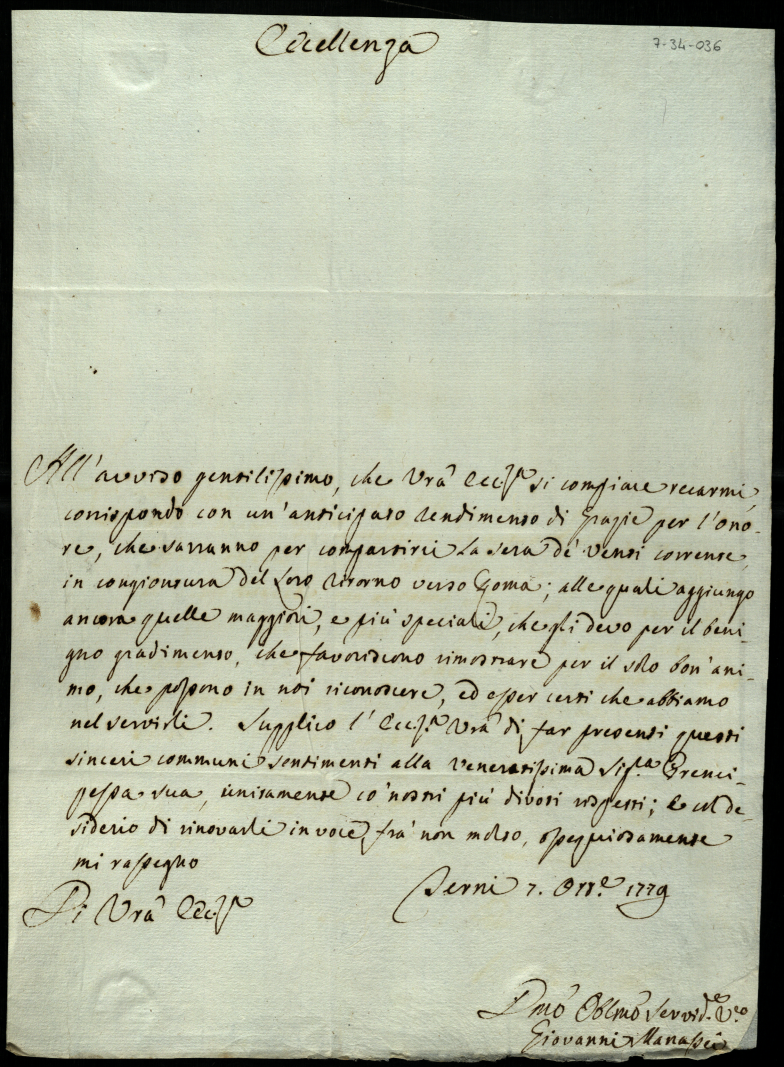 Eccellenza
7-34-036
All'avviso gentilissimo, che Vrâ Ecc.za si compiace recarmi,
corrispondo con un'anticipato rendimento di Grazie per l'Ono-
re, che saranno per compartirci la sera de' venti corrente,
in congiontura del Loro ritorno verso Roma; alle quali aggiungo
ancora quelle maggiori, e più speciali, che gli devo per il beni-
gno gradimento, che favoriscono rimostrare per il solo bon'ani-
mo, che possono in noi riconoscere, ed esser certi che abbiamo
nel servirli. Supplico l'Ecc.za Vrâ di far presenti questi
sinceri communi sentimenti alla veneratissima Sig.ra Prenci-
pessa sua, unitamente co' nostri più divoti rispetti; e col de-
siderio di rinovarli in voce, frà non molto, ossequiosamente
mi rassegno
Di Vrâ Ecc.za
Terni 7. Ott.e 1779
Dmô Oblmô Servid.e V.o
Giovanni Manassei